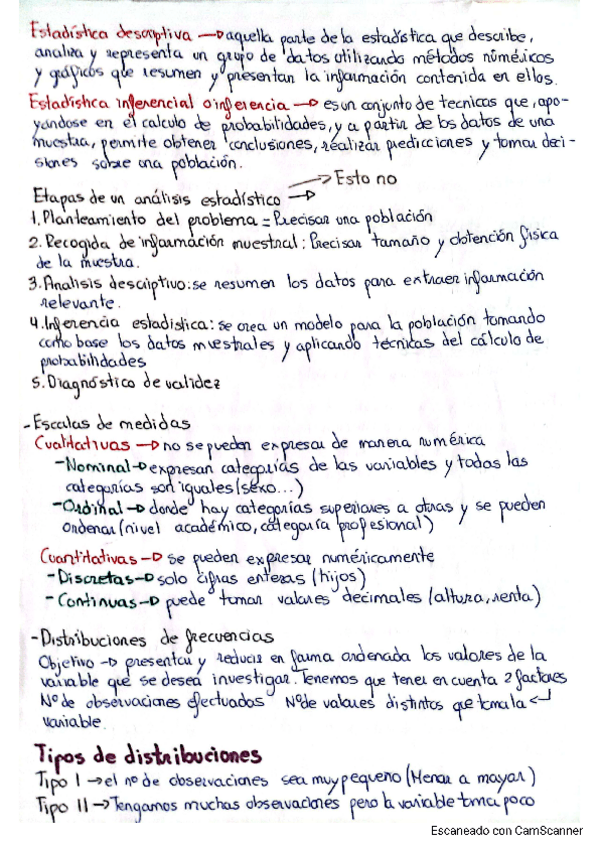 Estadística descriptiva → aquella parte de la estadística que describe,
analiza y representa un grupo de datos utilizando métodos numéricos
y gráficos que resumen y presentan la información contenida en ellos.
Estadística inferencial o inferencia → es un conjunto de tecnicas que, apo-
yandose en el calculo de probabilidades, y a partir de los datos de una
muestra, permite obtener conclusiones, realizar predicciones y tomar deci-
siones sobre una población.
→ Esto no
Etapas de un análisis estadístico →
1. Planteamiento del problema = Precisar una población
2. Recogida de información muestral: Precisar tamaño y obtención física
de la muestra.
3. Analisis descriptivo: se resumen los datos para extraer información
relevante.
4. Inferencia estadistica: se crea un modelo para la población tomando
como base los datos muestrales y aplicando técnicas del cálculo de
probabilidades
5. Diagnóstico de validez
- Escalas de medidas
Cualitativas → no se pueden expresar de manera numérica
- Nominal → expresan categorías de las variables y todas las
categorías son iguales (sexo...)
- Ordinal → donde hay categorías superiores a otras y se pueden
ordenar (nivel académico, categoría profesional)
Cuantitativas → se pueden expresar numéricamente
- Discretas → solo cifras enteras (hijos)
- Continuas → puede tomar valores decimales (altura, renta)
- Distribuciones de frecuencias
Objetivo → presentar y reducir en forma ordenada los valores de la
variable que se desea investigar. Tenemos que tener en cuenta 2 factores
Nº de observaciones efectuados Nº de valores distintos que toma la ↵
variable.
Tipos de distribuciones
Tipo I → el nº de observaciones sea muy pequeno (Menor a mayor)
Tipo II → Tengamos muchas observaciones pero la variable toma poco
Escaneado con CamScanner